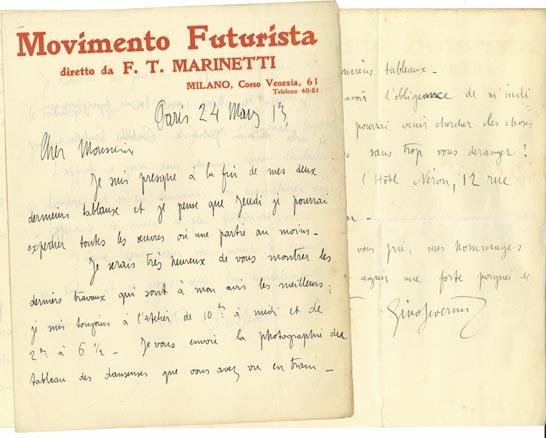 Movimento Futurista
diretto da F. T. MARINETTI
MILANO, Corso Venezia, 61
Telefono 40-81
Paris 24 Mars 13
Cher Monsieur
Je suis presque à la fin de mes deux
derniers tableaux et je pense que Jeudi je pourrai
expedier toutes les œuvres où une partie au moins.
Je serais très heureux de vous montrer les
derniers travaux qui sont à mon avis les meilleurs;
je suis toujours à l'atelier de 10 hs à midi et de
2 hs à 6 ½ - Je vous envoie la photographie du
tableau des danseuses que vous avez vu en train -
anciens tableaux -
avoir l'obligeance de m'indi
pourrai venir chercher les choses
sans trop vous déranger?
l'Hôtel Néron, 12 rue
vous prie, mes hommages
agréer une forte poignée de
Gino Severini